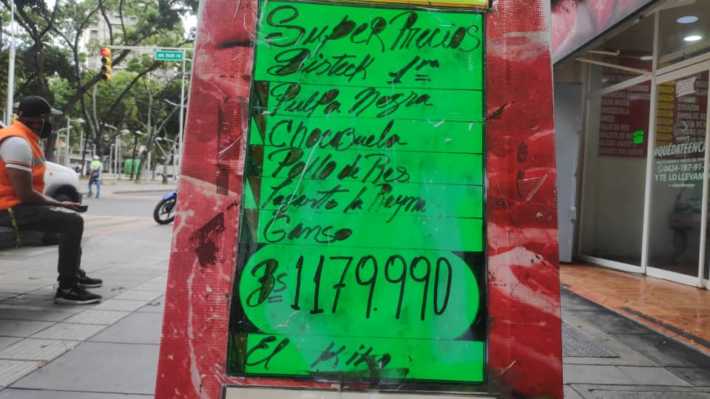 Super Precios
Bisteck 1ra
Pulpa Negra
Chocozuela
Pollo de Res
Lagarto La Reyna
Ganso
Bs 1179.990
El Kilo
#QUÉDATEENCA
Y TE LO LLEVAM